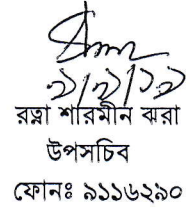 রত্না শারমীন ঝরা
উপসচিব
ফোনঃ ৯১১৬২৯০